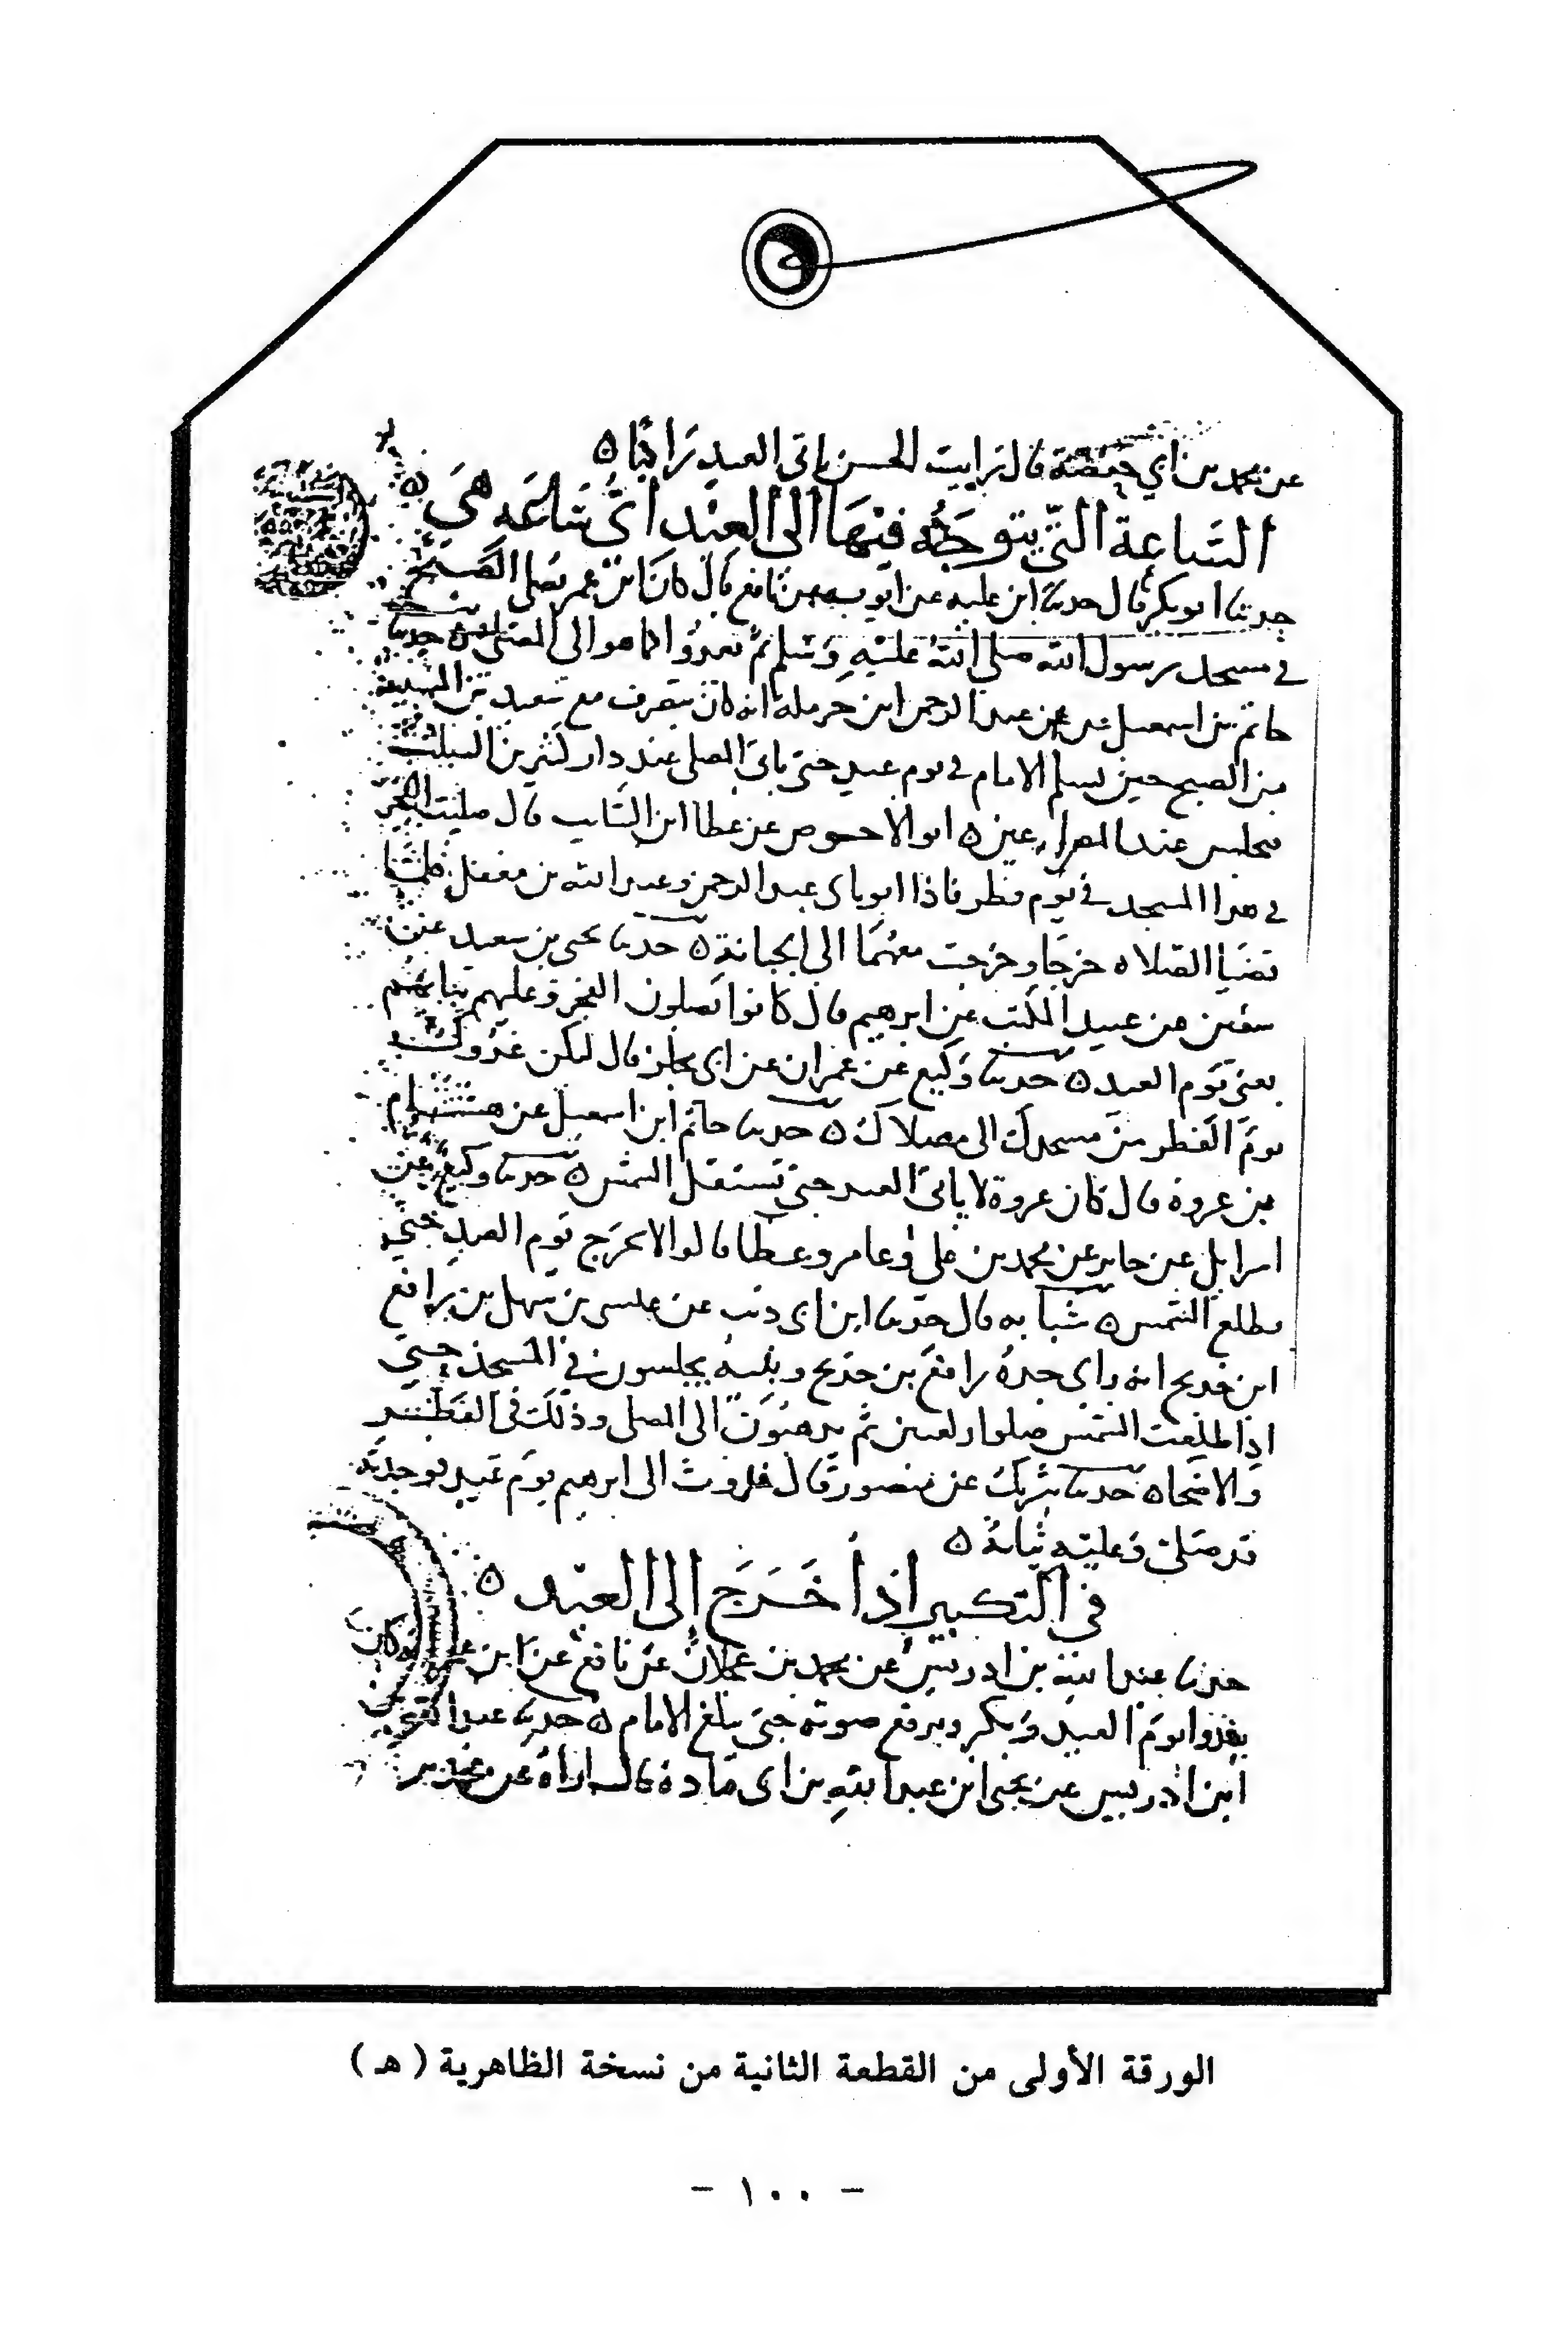 عن محمد بن ابي حفصة قال رايت الحسن ياتى العيد راكبا ه
الساعة التي يتوجه فيها الى العيد اى ساعة هي ه
حدثنا ابو بكر قال حدثنا ابن علية عن ايوب عن نافع قال كان ابن عمر يصلي الصبح
في مسجد رسول الله صلى الله عليه وسلم ثم يغدوا كما هو الى المصلى ه حدثنا
حاتم بن اسمعيل عن عبد الرحمن ابن حرملة انه كان ينصرف مع سعيد بن المسيب
من الصبح حين يسلم الامام في يوم عيد حتى ياتى المصلى عند دار كثير بن الصلت
فيجلس عند المصراعين ه ابو الاحوص عن عطا ابن السايب قال صليت الفجر
في هذا المسجد في يوم فطر فاذا ابو عبد الرحمن وعبد الله بن معقل فلما
قضيا الصلاة خرجا وخرجت معهما الى الجبانة ه حدثنا يحيى بن سعيد عن
سفين عن عبيد المكتب عن ابرهيم قال كانوا يصلون الفجر وعليهم ثيابهم
يعني يوم العيد ه حدثنا وكيع عن عمران عن ابى مجلز قال ليكن غدوك
يوم الفطر من مسجدك الى مصلاك ه حدثنا حاتم ابن اسمعيل عن هشام
بن عروة قال كان عروة لا ياتى العيد حتى تستقل الشمس ه حدثنا وكيع عن
اسرايل عن جابر عن محمد بن علي وعامر وعطا قالوا لا تخرج يوم العيد حتى
تطلع الشمس ه شبابه قال حدثنا ابن ابى ذئب عن عيسى بن سهل بن رافع
ابن خديج انه راى جده رافع بن خديج وبنيه يجلسون في المسجد حتى
اذا طلعت الشمس صلوا ركعتين ثم يذهبون الى المصلى وذلك في الفطر
والاضحاه حدثنا شريك عن منصور قال غدوت الى ابرهيم يوم عيد فوجدته
قد صلى وعليه ثيابه ه
في التكبير اذا خرج الى العيد ه
حدثنا عبد الله بن ادريس عن محمد بن عجلان عن نافع عن ابن عمر كان
يغدوا يوم العيد ويكبر ويرفع صوته حتى يبلغ الامام ه حدثنا عبد الله
ابن ادريس عن يحيى ابن عبد الله بن ابى قتادة قال اراه عن محمد بن
الورقة الأولى من القطعة الثانية من نسخة الظاهرية ( هـ )
– ١٠٠ –